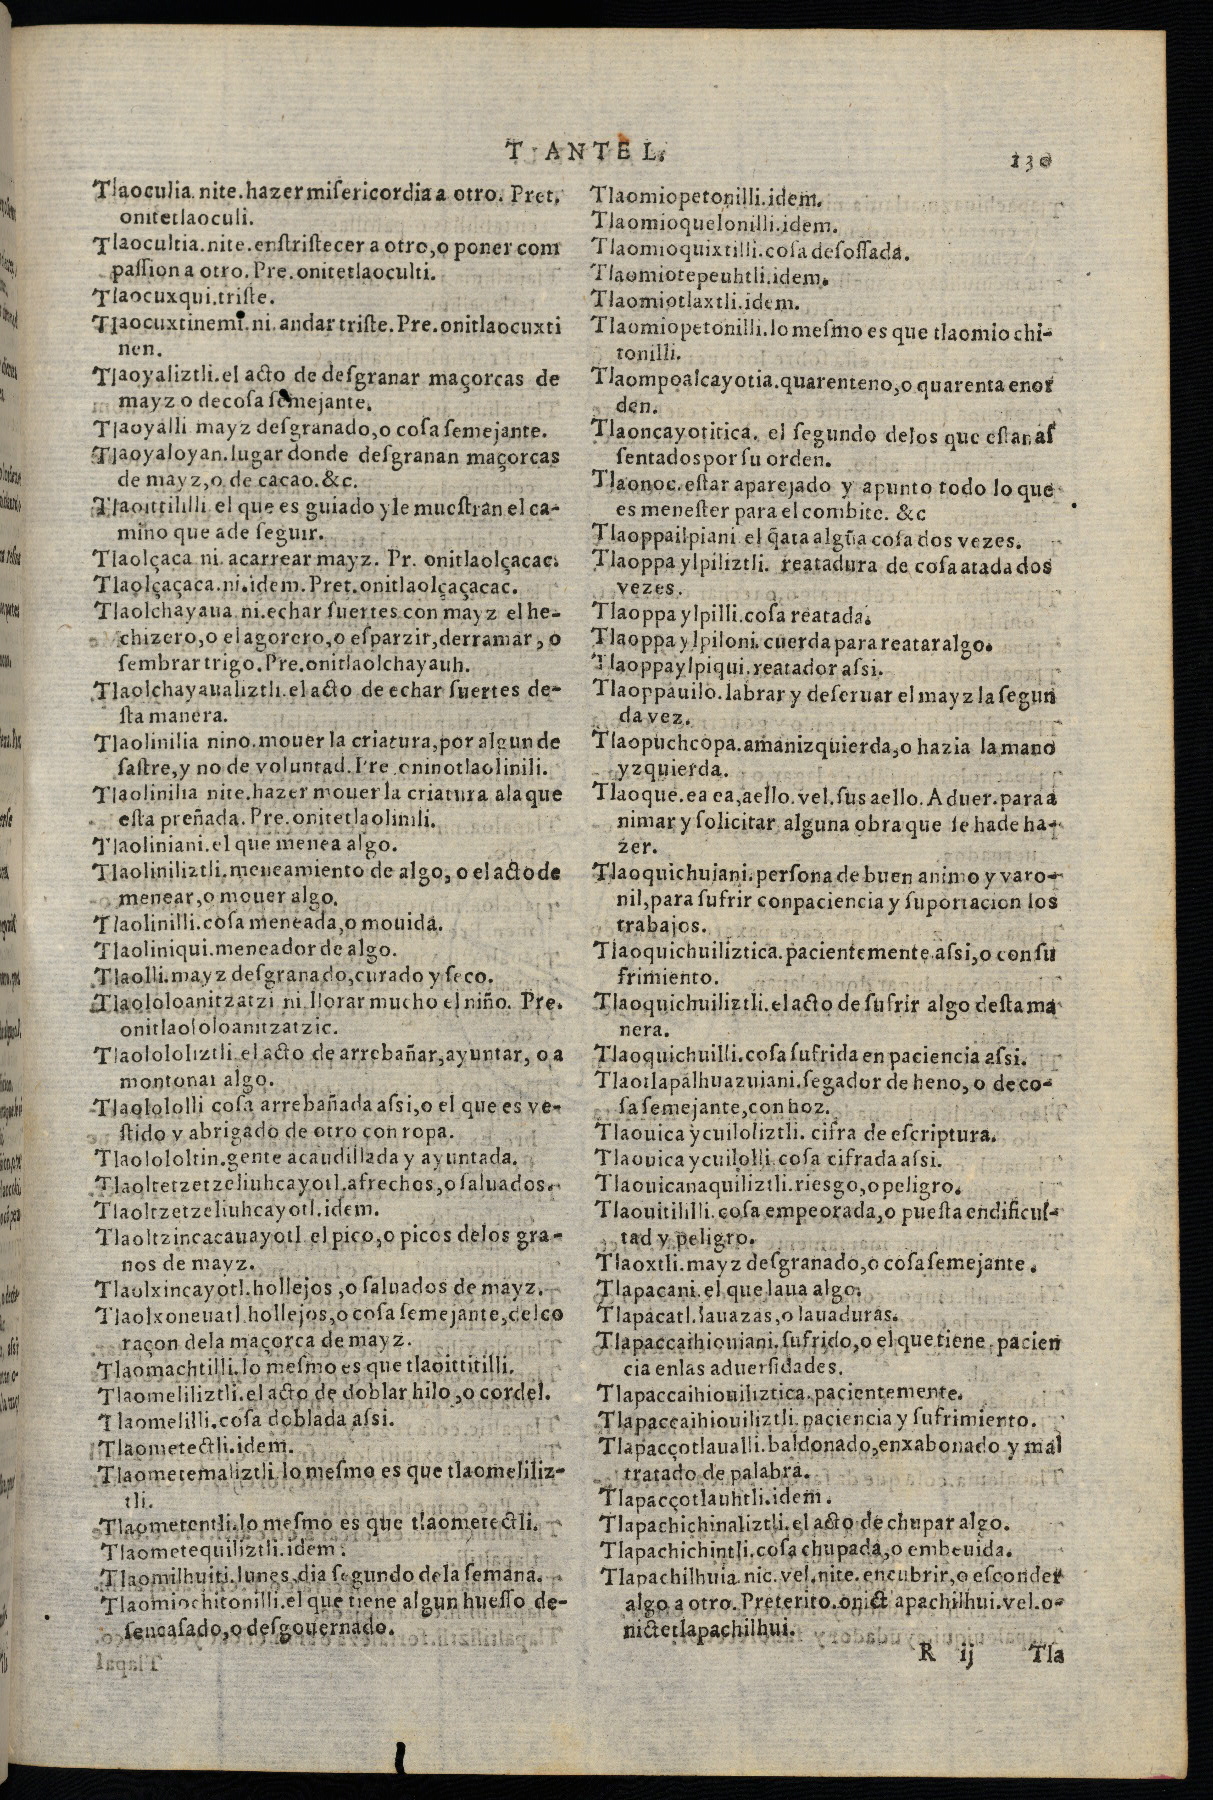 T ANTE L.
130
Tlaoculia. nite. hazer miſericordia a otro. Pret.
onitetlaoculi.
Tlaocultia. nite. enſtriſtecer a otro, o poner com
paſſion a otro. Pre. onitetlaoculti.
Tlaocuxqui. triſte.
Tlaocuxtinemi. ni. andar triſte. Pre. onitlaocuxti
nen.
Tlaoyaliztli. el acto de deſgranar maçorcas de
mayz o de coſa ſemejante.
Tlaoyalli mayz deſgranado, o coſa ſemejante.
Tlaoyaloyan. lugar donde deſgranan maçorcas
de mayz, o de cacao. &c.
Tlaoittililli. el que es guiado y le mueſtran el ca-
mino que a de ſeguir.
Tlaolçaca. ni. acarrear mayz. Pr. onitlaolçacac.
Tlaolçaçaca. ni. idem. Pret. onitlaolçaçacac.
Tlaolchayaua. ni. echar ſuertes con mayz el he-
chizero, o el agorero, o eſparzir, derramar, o
ſembrar trigo. Pre. onitlaolchayauh.
Tlaolchayaualiztli. el acto de echar ſuertes de-
ſta manera.
Tlaolinilia nino. mouer la criatura, por algun de
ſaſtre, y no de voluntad. Pre. oninotlaolinili.
Tlaolinilia nite. hazer mouer la criatura ala que
eſta preñada. Pre. onitetlaolinili.
Tlaoliniani. el que menea algo.
Tlaoliniliztli. meneamiento de algo, o el acto de
menear, o mouer algo.
Tlaolinilli. coſa meneada, o mouida.
Tlaoliniqui. meneador de algo.
Tlaolli. mayz deſgranado, curado y ſeco.
Tlaololoanitzatzi ni. llorar mucho el niño. Pre.
onitlaololoanitzatzic.
Tlaolololiztli. el acto de arrebañar, ayuntar, o a
montonar algo.
Tlaolololli coſa arrebañada aſſi, o el que es ve-
ſtido y abrigado de otro con ropa.
Tlaolololtin. gente acaudillada y ayuntada.
Tlaoltetzetzeliuhcayotl. afrechos, o ſaluados.
Tlaoltzetzeliuhcayotl. idem.
Tlaoltzincacauayotl. el pico, o picos delos gra-
nos de mayz.
Tlaolxincayotl. hollejos, o ſaluados de mayz.
Tlaolxoneuatl. hollejos, o coſa ſemejante, del co
raçon dela maçorca de mayz.
Tlaomachtilli. lo meſmo es que tlaoittitilli.
Tlaomeliliztli. el acto de doblar hilo, o cordel.
Tlaomelilli. coſa doblada aſſi.
Tlaometectli. idem.
Tlaometemaliztli. lo meſmo es que tlaomeliliz-
tli.
Tlaometentli. lo meſmo es que tlaometectli.
Tlaometequiliztli. idem.
Tlaomilhuiti. lunes, dia ſegundo dela ſemana.
Tlaomiochitonilli. el que tiene algun hueſſo de-
ſencaſado, o deſgouernado.
Tlaomiopetonilli. idem.
Tlaomioquelonilli. idem.
Tlaomioquixtilli. coſa deſoſſada.
Tlaomiotepeuhtli. idem.
Tlaomiotlaxtli. idem.
Tlaomiopetonilli. lo meſmo es que tlaomiochi-
tonilli.
Tlaompoalcayotia. quarenteno, o quarenta en or
den.
Tlaoncayotitica. el ſegundo delos que eſtan aſ
ſentados por ſu orden.
Tlaonoc. eſtar aparejado y apunto todo lo que
es meneſter para el combite. &c
Tlaoppailpiani. el q̃ ata algũa coſa dos vezes.
Tlaoppaylpiliztli. reatadura de coſa atada dos
vezes.
Tlaoppaylpilli. coſa reatada.
Tlaoppaylpiloni. cuerda para reatar algo.
Tlaoppaylpiqui. reatador aſſi.
Tlaoppauilo. labrar y deſeruar el mayz la ſegun
da vez.
Tlaopuchcopa. amanizquierda, o hazia la mano
yzquierda.
Tlaoque. ea ea, aello. vel. ſus aello. Aduer. para a
nimar y ſolicitar alguna obra que ſe ha de ha-
zer.
Tlaoquichuiani. perſona de buen animo y varo-
nil, para ſufrir con paciencia y ſuportacion los
trabajos.
Tlaoquichuiliztica. pacientemente aſſi, o con ſu
frimiento.
Tlaoquichuiliztli. el acto de ſufrir algo deſta ma
nera.
Tlaoquichuilli. coſa ſufrida en paciencia aſſi.
Tlaotlapalhuazuiani. ſegador de heno, o de co-
ſa ſemejante, con hoz.
Tlaouicaycuiloliztli. cifra de eſcriptura.
Tlaouicaycuilolli coſa cifrada aſſi.
Tlaouicanaquiliztli. riesgo, o peligro.
Tlaouitililli. coſa empeorada, o pueſta en dificul-
tad y peligro.
Tlaoxtli. mayz deſgranado, o coſa ſemejante.
Tlapacani. el que laua algo.
Tlapacatl. lauazas, o lauaduras.
Tlapaccaihiouiani. ſufrido, o el que tiene pacien
cia enlas aduerſidades.
Tlapaccaihiouiliztica. pacientemente.
Tlapaccaihiouiliztli. paciencia y ſufrimiento.
Tlapacçotlaualli. baldonado, enxabonado y mal
tratado de palabra.
Tlapacçotlauhtli. idem.
Tlapachichinaliztli. el acto de chupar algo.
Tlapachichintli. coſa chupada, o embeuida.
Tlapachilhuia. nic. vel. nite. encubrir, o eſconder
algo a otro. Preterito. onictlapachilhui. vel. o-
nictetlapachilhui.
R ij
Tla